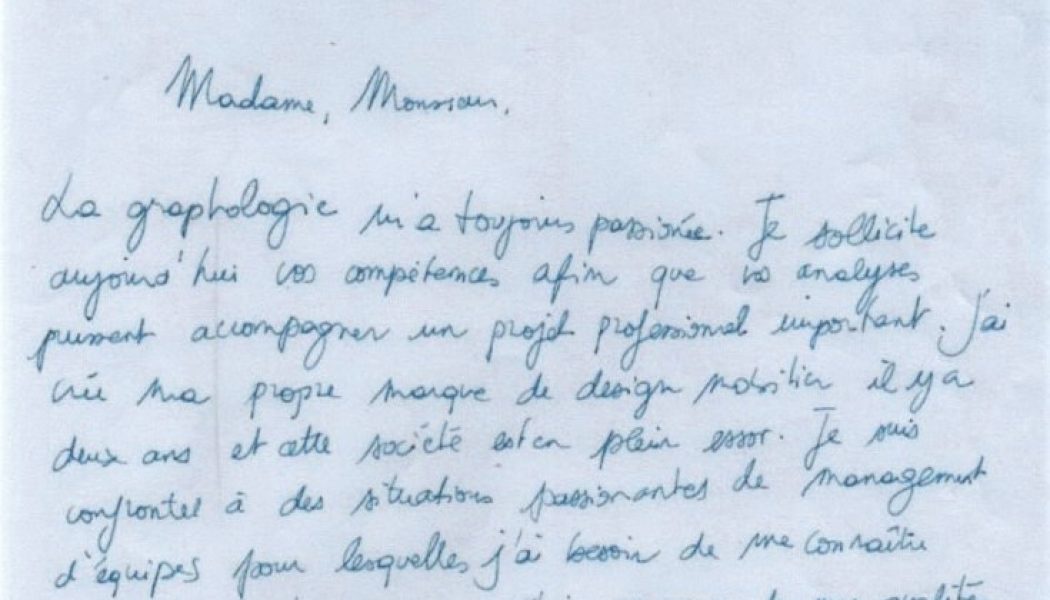 Madame, Monsieur,
La graphologie m'a toujours passionée. Je sollicite
aujourd'hui vos compétences afin que vos analyses
puissent accompagner un projet professionnel important. J'ai
créé ma propre marque de design mobilier il y a
deux ans et cette société est en plein essor. Je suis
confrontée à des situations passionnantes de management
d'équipes pour lesquelles j'ai besoin de me connaître
qualité